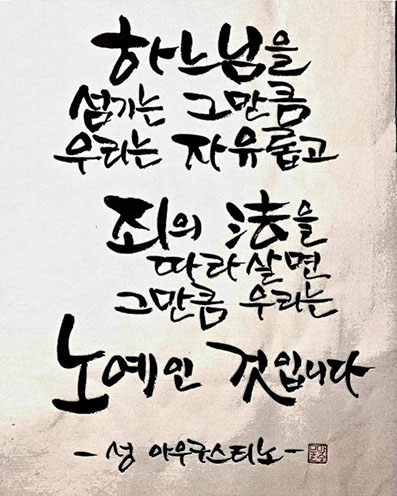 하느님을
섬기는 그만큼
우리는 자유롭고
죄의 法을
따라살면
그만큼 우리는
노예인 것입니다
- 성 아우구스티노 -